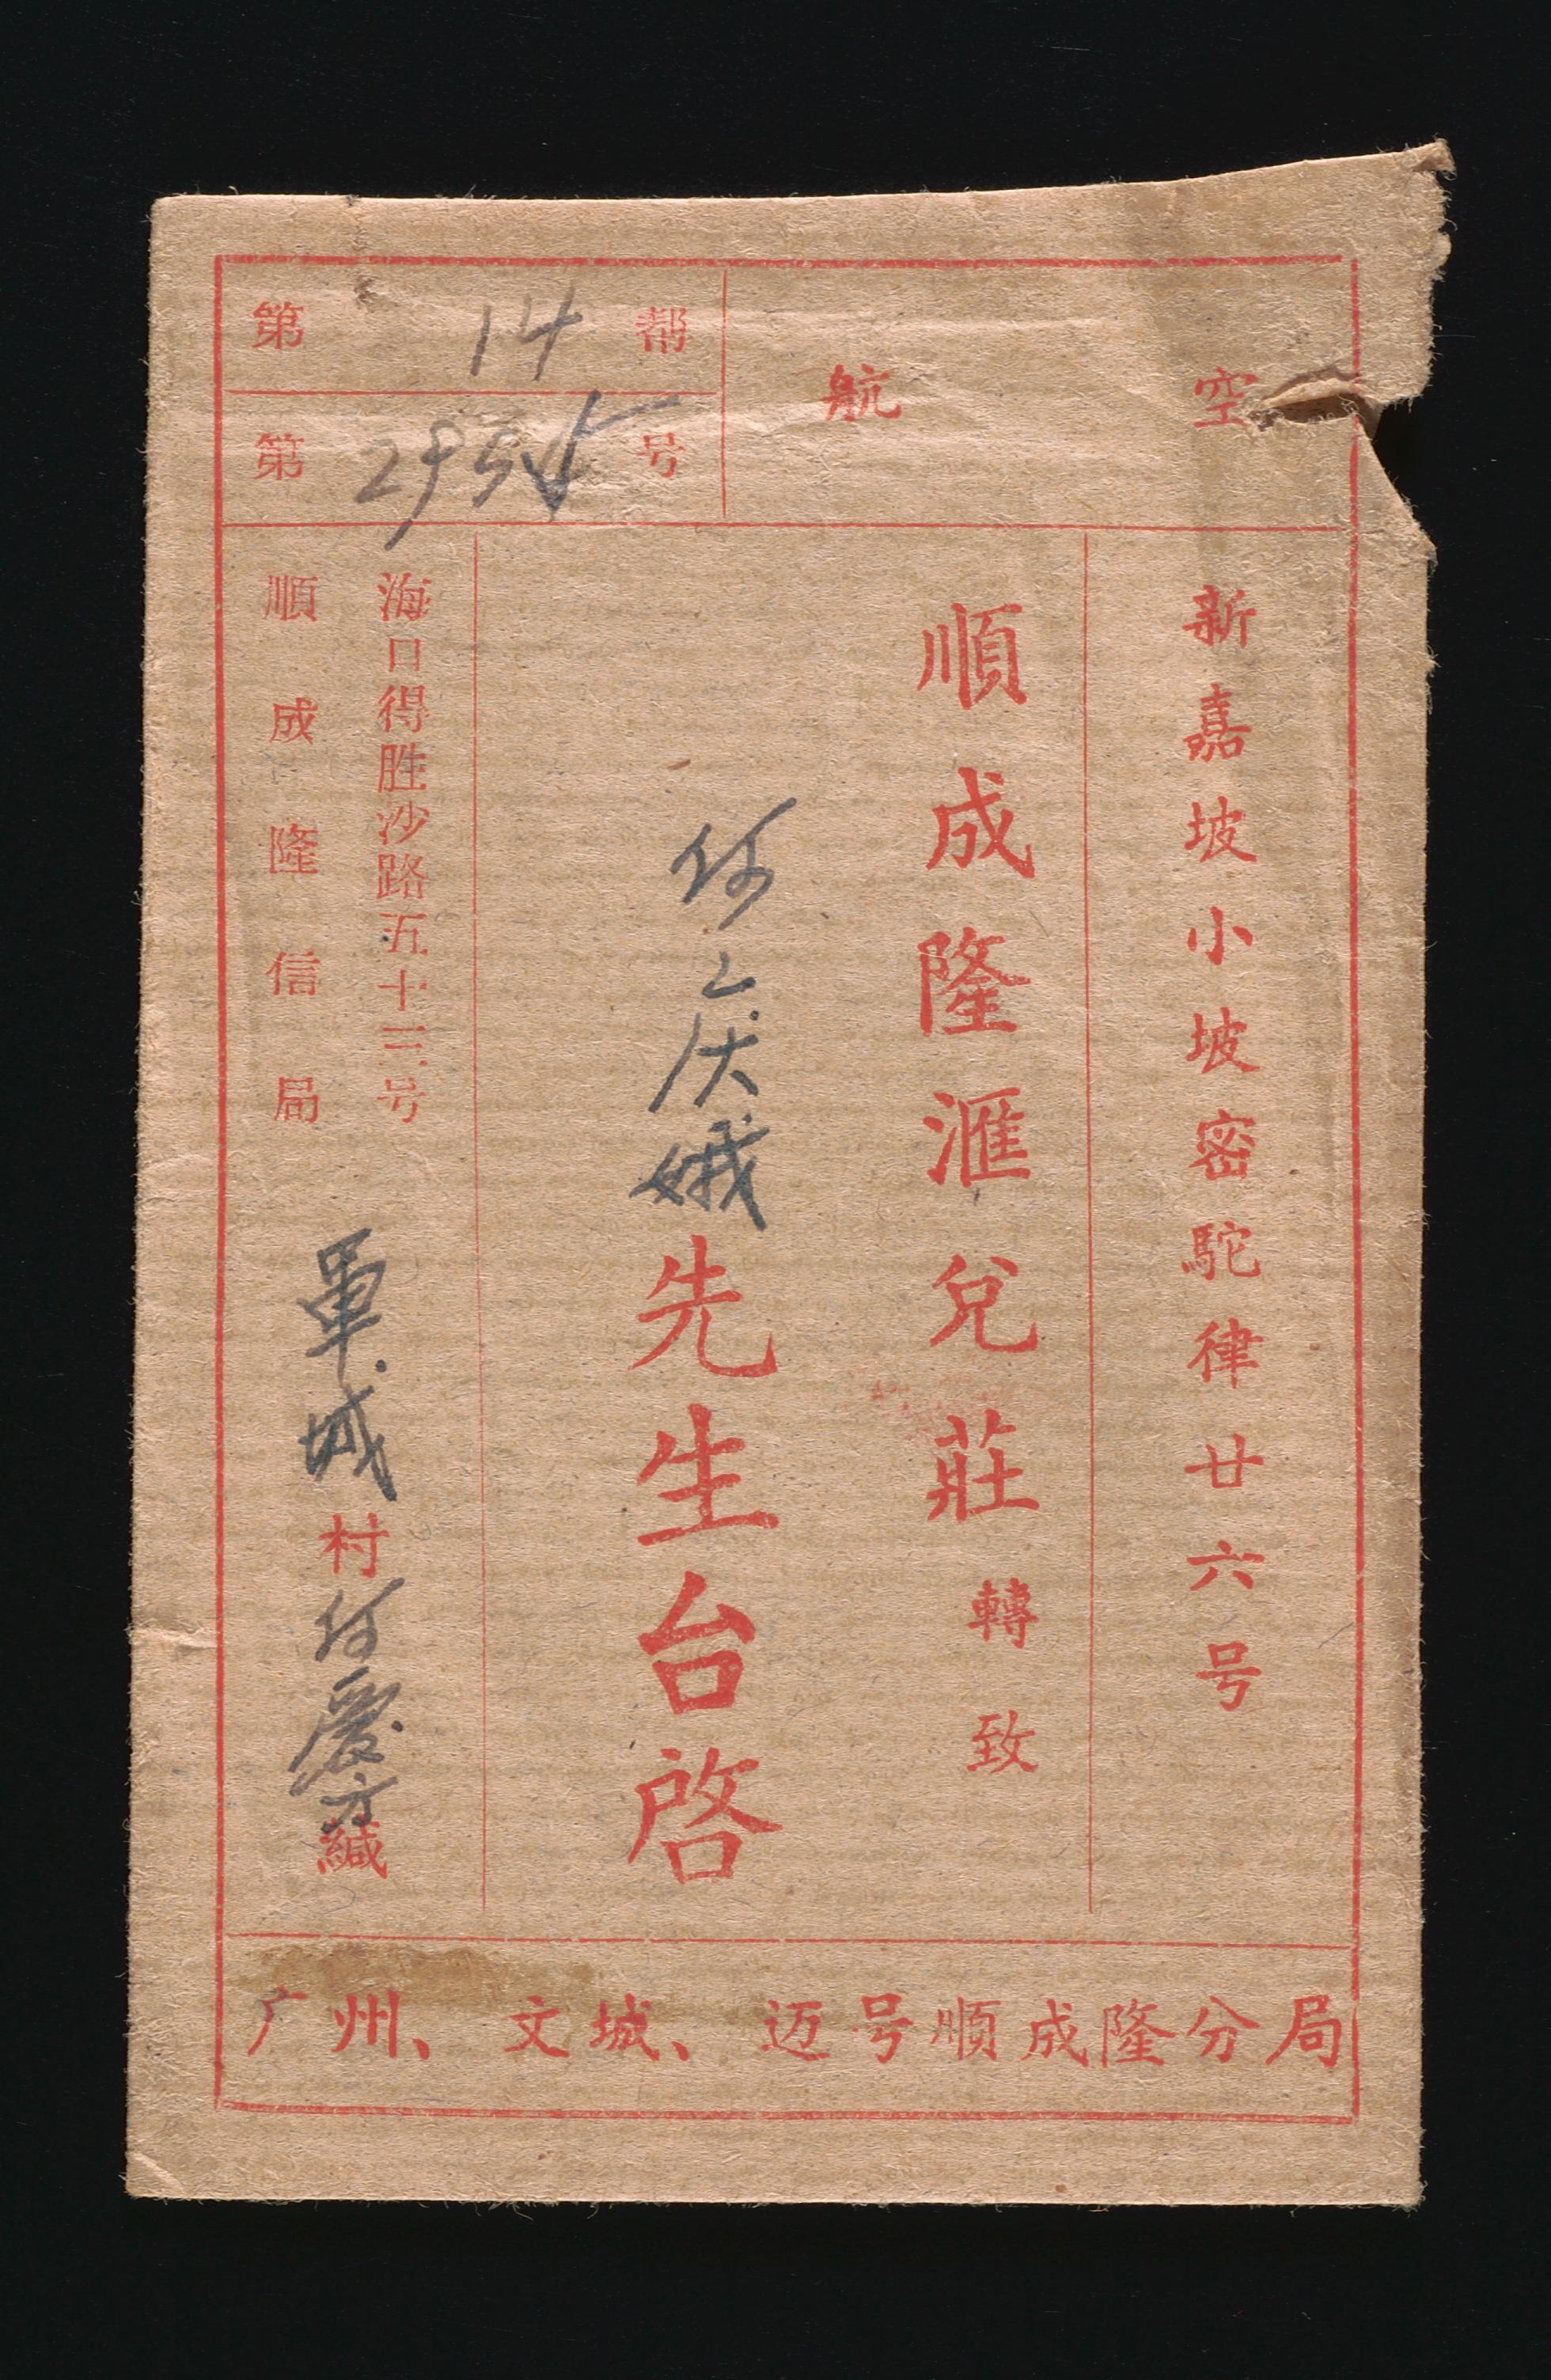 航空
第 14 帮
第 号
新嘉坡小坡密駝律廿六号
順成隆滙兌莊轉致
何 庆娥先生台啓
海口得胜沙路五十三号
順成隆信局
軍城村何愛方緘
广州、文城、迈号順成隆分局